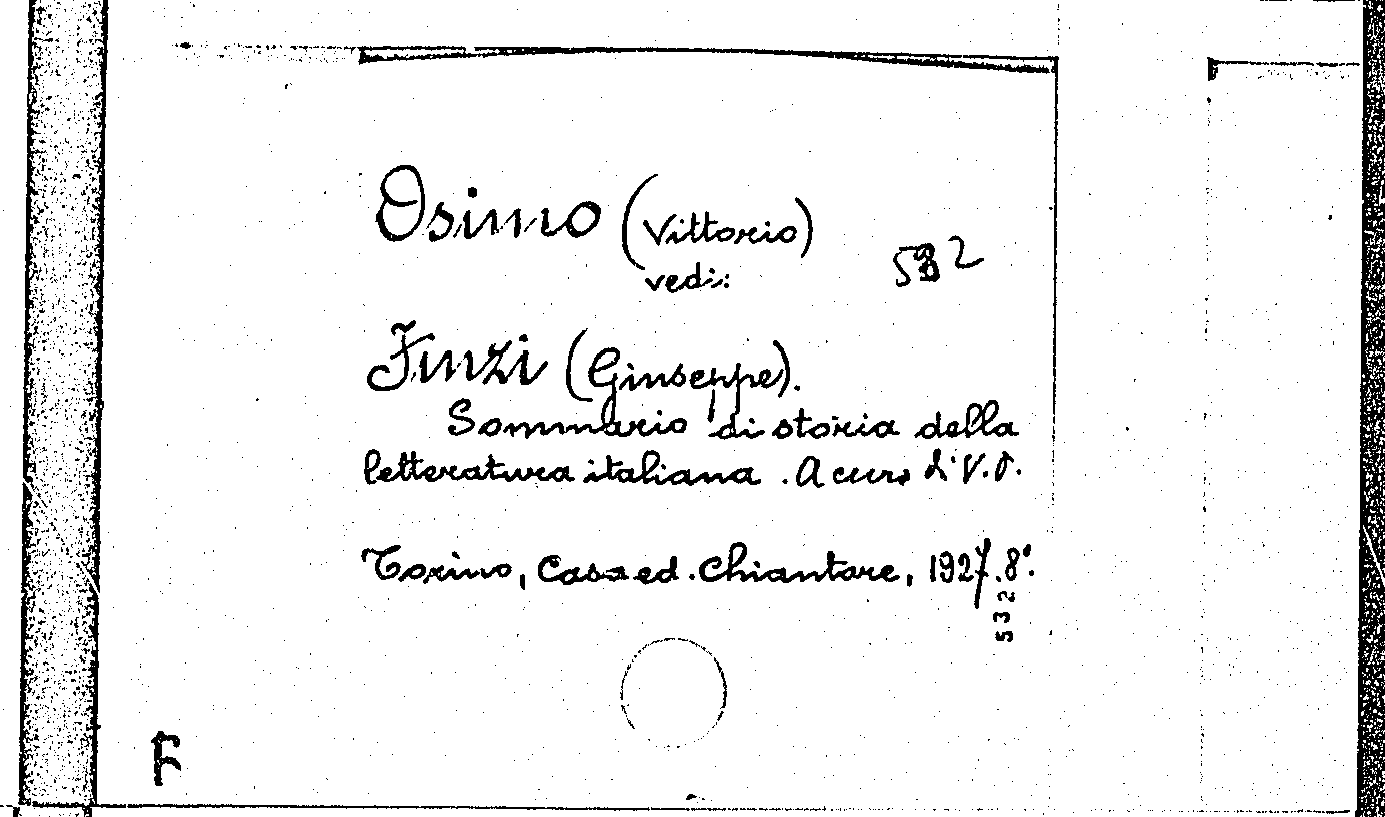 Osimo (Vittorio)
vedi:
532
Finzi (Giuseppe).
Sommario di storia della
letteratura italiana. A cura di V. O.
Torino, Casa ed. Chiantore, 1927. 8°.
532
F